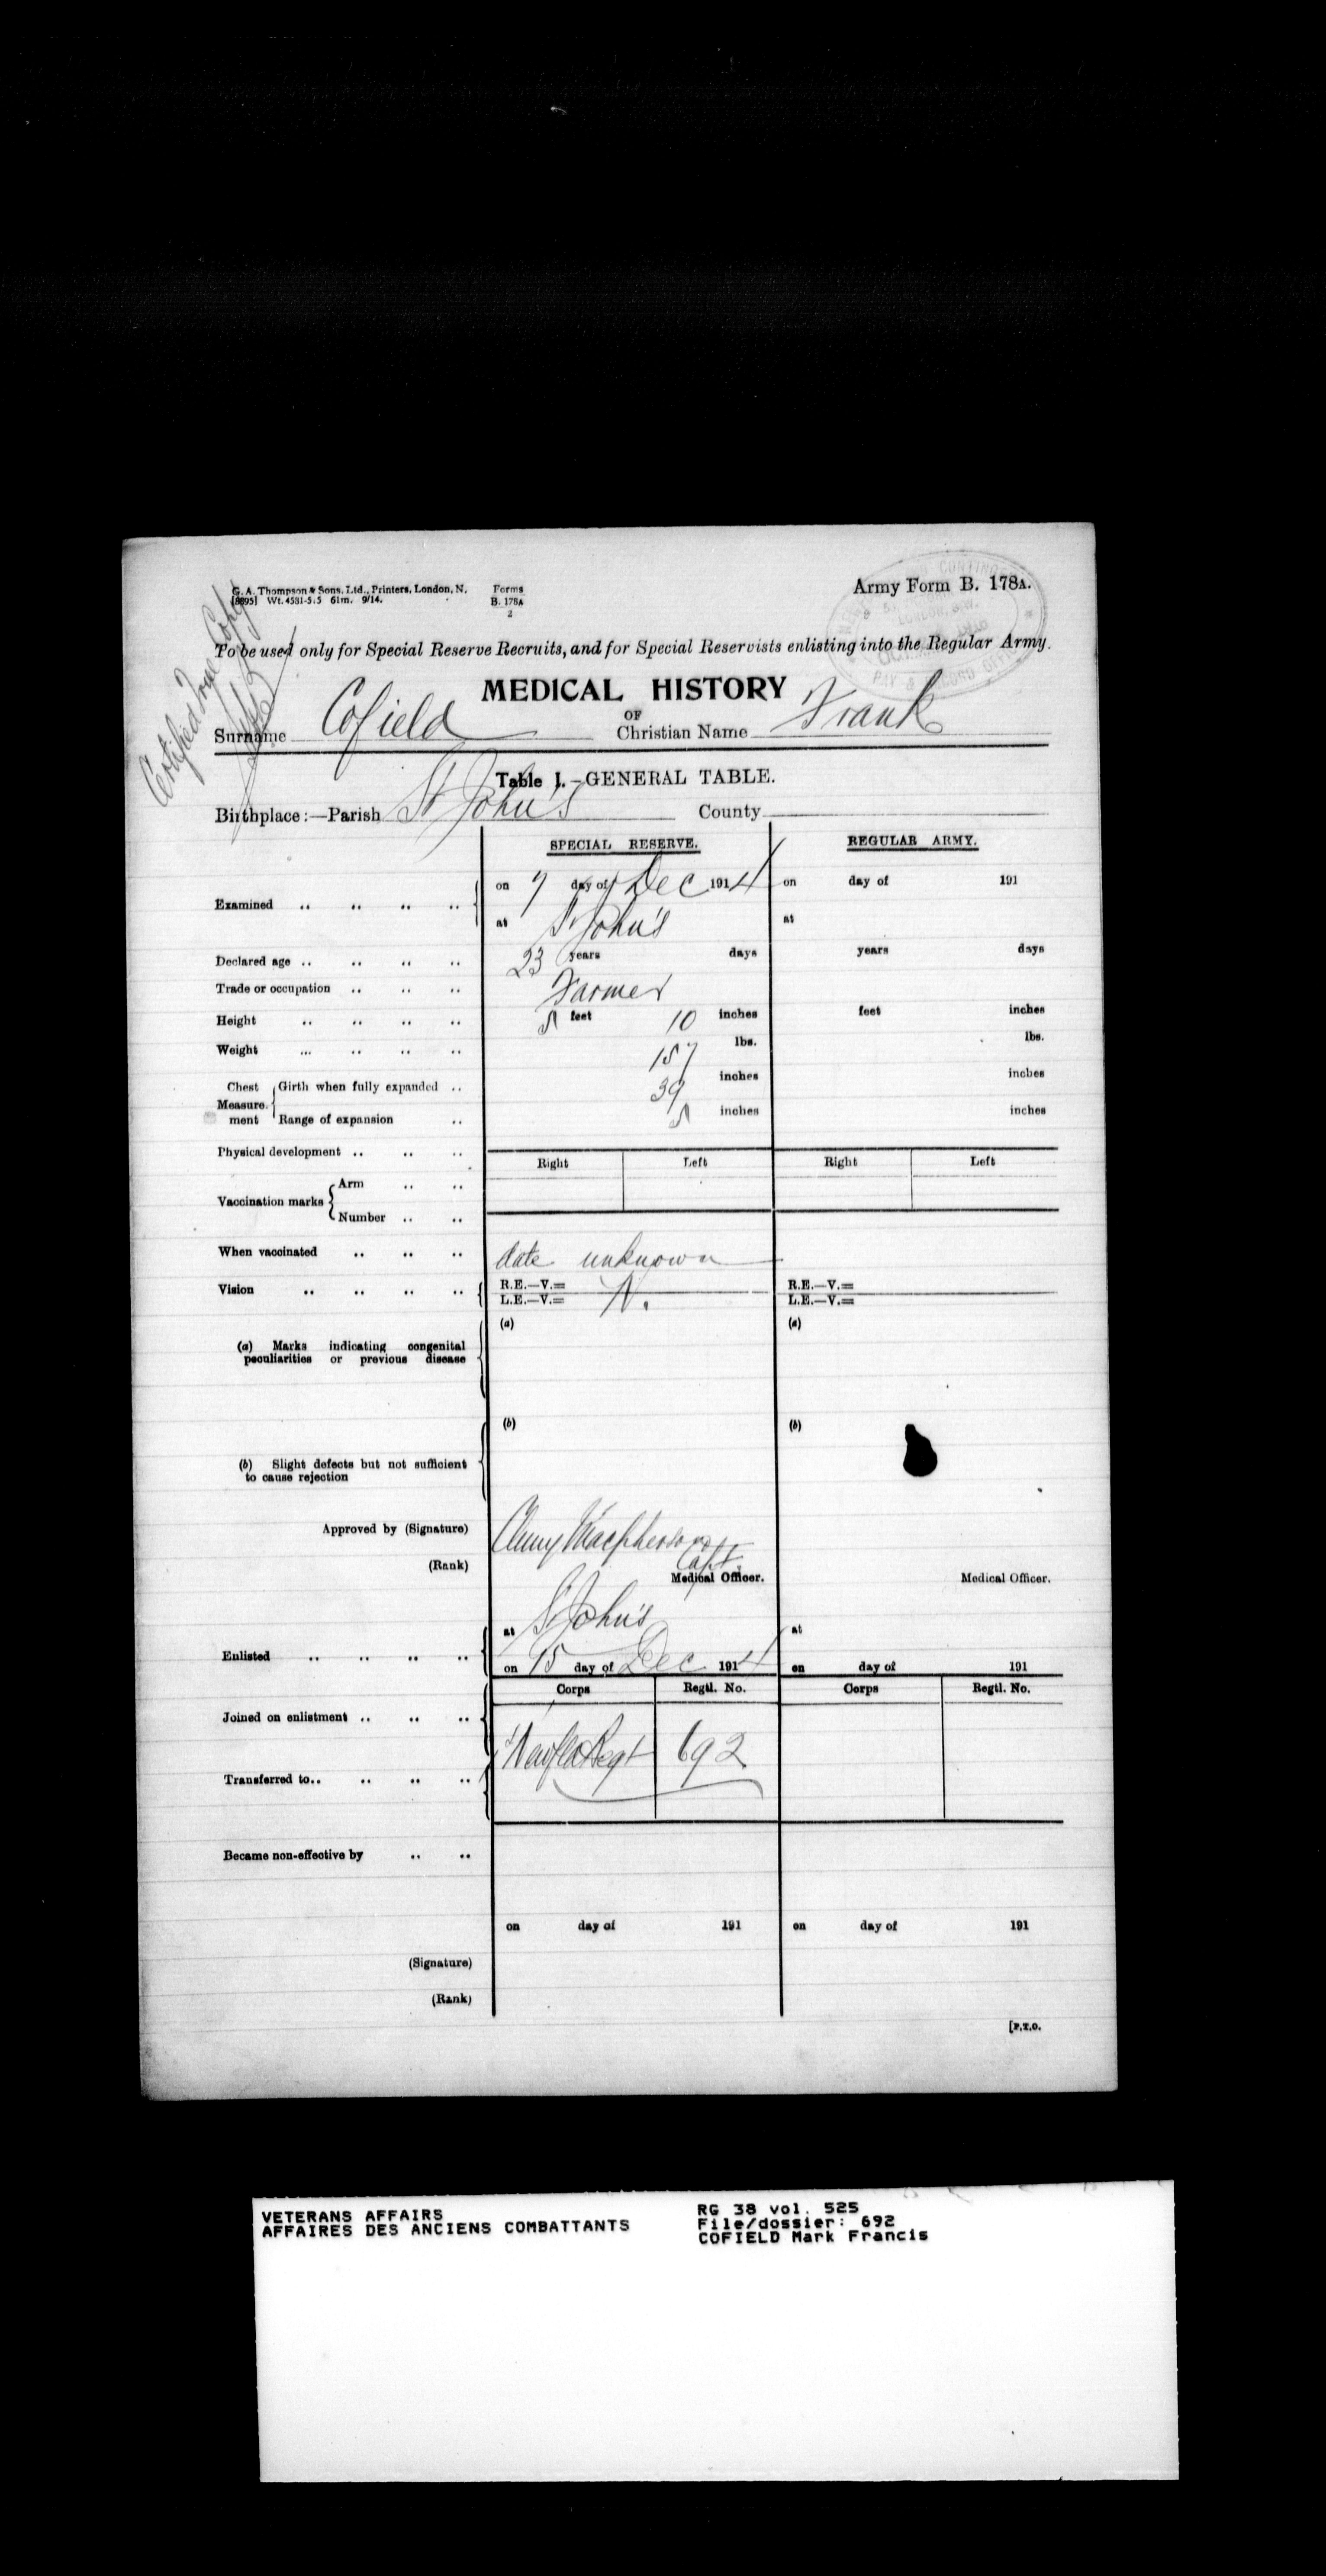 G. A. Thompson & Sons, Ltd., Printers, London, N. Forms Army Form B. 178A.
[8895] Wt. 4531-5.5 61m. 9/14. B. 178A
2
Certified True Copy
To be used only for Special Reserve Recruits, and for Special Reservists enlisting into the Regular Army.
PAY & RECORD OFFICE
MEDICAL HISTORY
OF
Surname Cofield Christian Name Frank
Table I.—GENERAL TABLE.
Birthplace:—Parish St John's County
SPECIAL RESERVE. REGULAR ARMY.
Examined .. .. .. .. on 7 day of Dec 1914 on day of 191
at St John's at
Declared age .. .. .. .. 23 years days years days
Trade or occupation .. .. .. Farmer
Height .. .. .. .. 5 feet 10 inches feet inches
Weight ... .. .. .. 157 lbs. lbs.
Chest Measurement { Girth when fully expanded .. 39 inches inches
Range of expansion .. 5 inches inches
Physical development .. .. ..
Right Left Right Left
Vaccination marks { Arm .. ..
Number .. ..
When vaccinated .. .. .. date unknown
Vision .. .. .. .. R.E.—V.= N. R.E.—V.=
L.E.—V.= L.E.—V.=
(a) Marks indicating congenital peculiarities or previous disease (a) (a)
(b) Slight defects but not sufficient to cause rejection (b) (b)
Approved by (Signature) Cluny Macpherson
(Rank) Capt.
Medical Officer. Medical Officer.
Enlisted .. .. .. .. at St John's at
on 15 day of Dec 1914 on day of 191
Corps Regtl. No. Corps Regtl. No.
Joined on enlistment .. .. .. Newfld Regt 692
Transferred to.. .. .. ..
Became non-effective by .. ..
on day of 191 on day of 191
(Signature)
(Rank)
[P.T.O.
VETERANS AFFAIRS RG 38 vol. 525
AFFAIRES DES ANCIENS COMBATTANTS File/dossier: 692
COFIELD Mark Francis